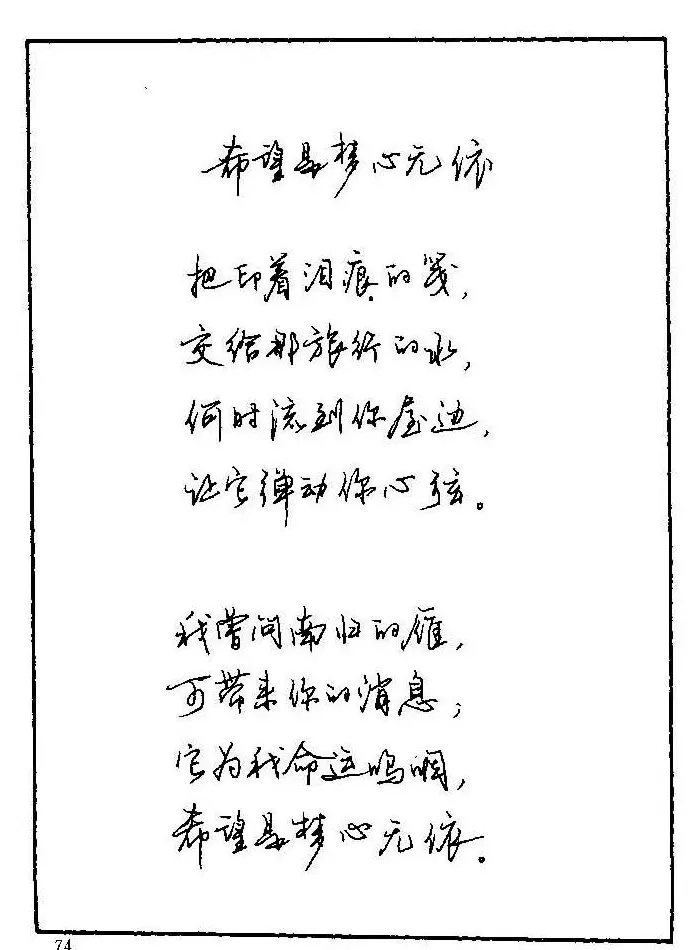 希望是梦心无依
把印着泪痕的笺，
交给那旅行的水，
何时流到你屋边，
让它弹动你心弦。
我曾问南归的雁，
可带来你的消息；
它为我命运呜咽，
希望是梦心无依。
74